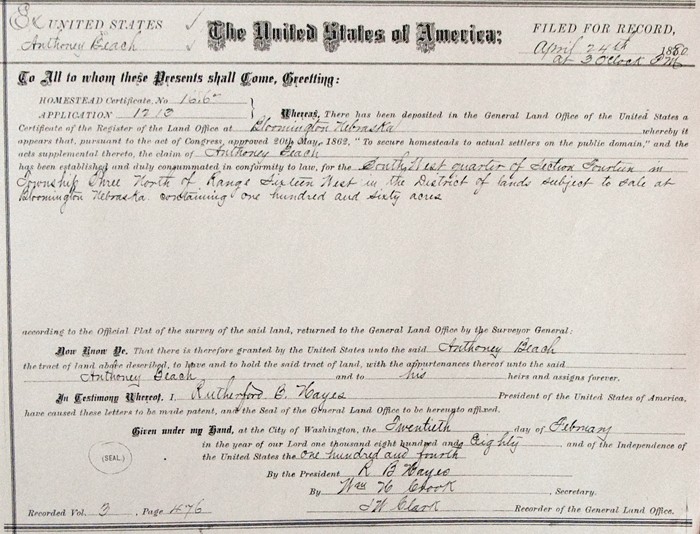 UNITED STATES
TO
Anthoney Beach
The United States of America:
FILED FOR RECORD,
April 24th 1880
at 3 O'Clock P.M.
To All to whom these Presents shall Come, Greeting:
HOMESTEAD Certificate, No 166
APPLICATION 1213
Whereas, There has been deposited in the General Land Office of the United States a
Certificate of the Register of the Land Office at Bloomington Nebraska whereby it
appears that, pursuant to the act of Congress, approved 20th May, 1862, "To secure homesteads to actual settlers on the public domain," and the
acts supplemental thereto, the claim of Anthoney Beach
has been established and duly consummated in conformity to law, for the South West quarter of Section Fourteen in
Township Three North of Range Sixteen West in the District of lands subject to sale at
Bloomington Nebraska containing one hundred and sixty acres
according to the Official Plat of the survey of the said land, returned to the General Land Office by the Surveyor General:
Now Know Ye, That there is therefore granted by the United States unto the said Anthoney Beach
the tract of land above described, to have and to hold the said tract of land, with the appurtenances thereof unto the said
Anthoney Beach and to his heirs and assigns forever.
In Testimony Whereof, I, Rutherford B. Hayes President of the United States of America,
have caused these letters to be made patent, and the Seal of the General Land Office to be hereunto affixed.
Given under my Hand, at the City of Washington, the Twentieth day of February
in the year of our Lord one thousand eight hundred and Eighty, and of the Independence of
the United States the one hundred and fourth
(SEAL)
By the President R B Hayes
By Wm H Crook, Secretary.
Recorded Vol. 3, Page 476
J W Clark Recorder of the General Land Office.